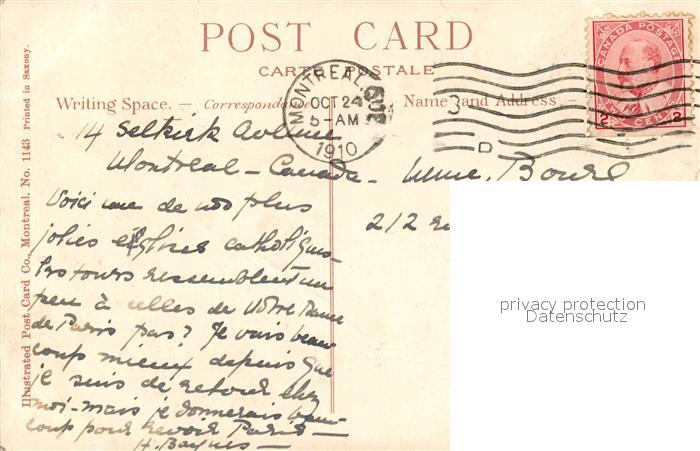 POST CARD
CARTE POSTALE
Writing Space. — Correspondance
Name and Address. —
MONTREAL
OCT 24
5-AM
1910
CANADA POSTAGE
2 CENTS 2
D
14 Selkirk Avenue
Montreal - Canada -
Voici une de nos plus
jolies églises catholiques -
Les tours ressemblent un
peu à celles de Notre Dame
de Paris pas? Je vais beau
coup mieux depuis que
je suis de retour chez
moi - mais je donnerais beau-
coup pour revoir Paris -
H. Baynes -
Mme. Bourl
212
privacy protection
Datenschutz
Illustrated Post Card Co., Montreal. No. 1143 Printed in Saxony.